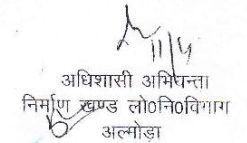 11/4
अधिशासी अभियन्ता
निर्माण खण्ड लो0नि0विभाग
अल्मोड़ा